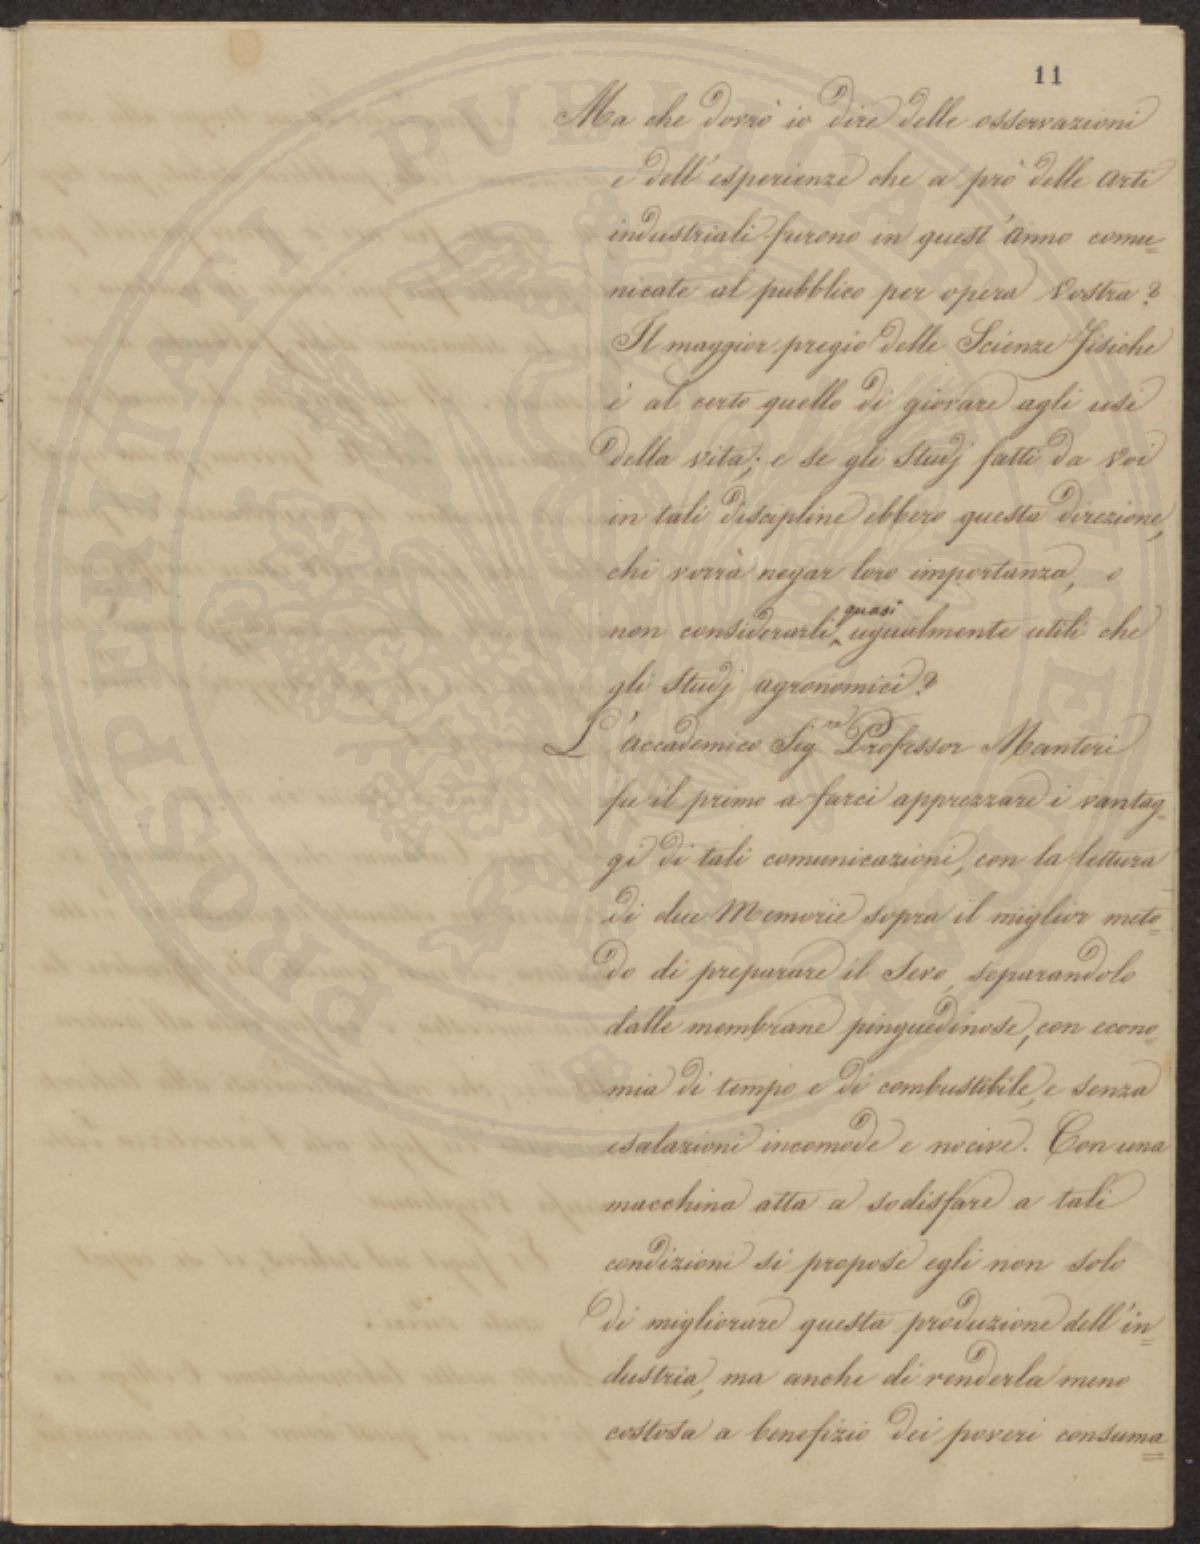 11
Ma che dovrò io dire delle osservazioni
e dell'esperienze che a prò delle arti
industriali furono in quest'anno comu=
nicate al pubblico per opera Vostra?
Il maggior pregio delle Scienze Fisiche
è al certo quello di giovare agli usi
della vita; e se gli Studj fatti da Voi
in tali discipline ebbero questa direzione,
chi vorrà negar loro importanza, o
non considerarli quasi ugualmente utili che
gli Studj agronomici?
L'accademico Sig.re Professor Manteri
fu il primo a farci apprezzare i vantag=
gi di tali comunicazioni, con la lettura
di due Memorie sopra il miglior meto=
do di preparare il Sevo, separandolo
dalle membrane pinguedinose, con econo=
mia di tempo e di combustibile, e senza
esalazioni incomode e nocive. Con una
macchina atta a sodisfare a tali
condizioni si propose egli non solo
di migliorare questa produzione dell'in=
dustria, ma anche di renderla meno
costosa a benefizio dei poveri consuma=
PROSPERITATI PVBLICAE